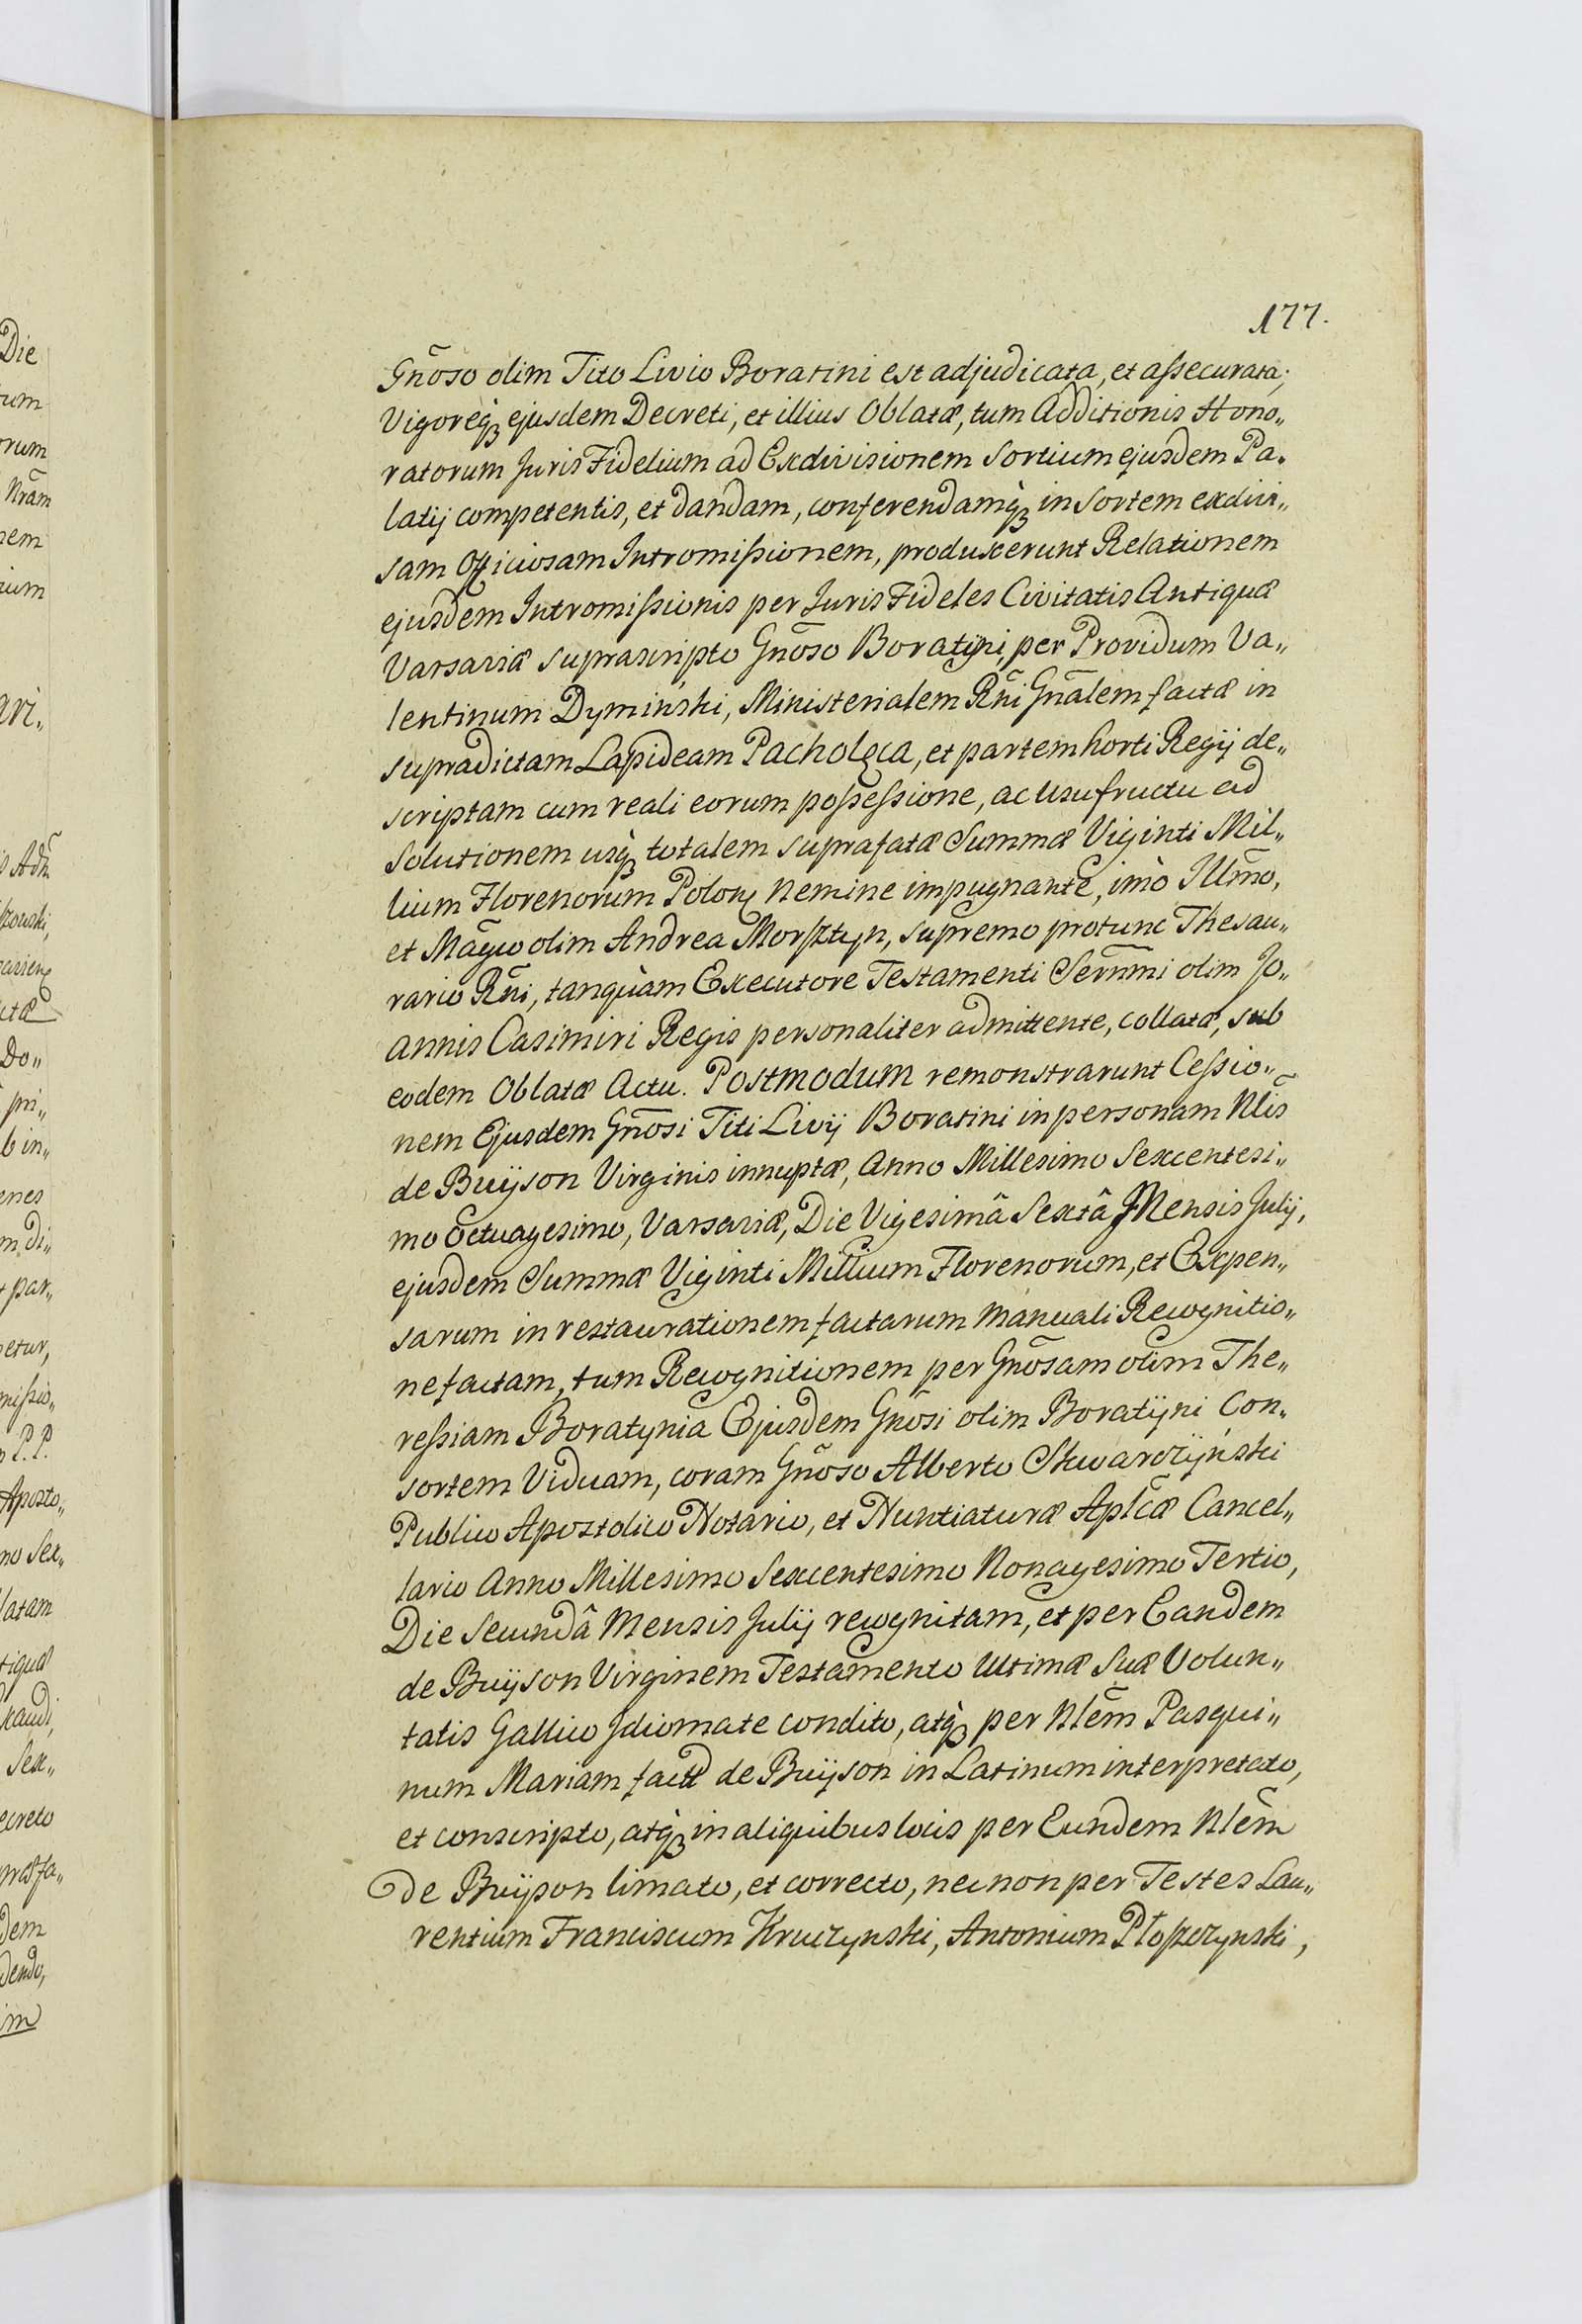 177.
Gño̅so olim Tito Livio Boratini est adjudicata, et aſsecurata;
Vigoreq́ʒ ejusdem Decreti, et illius Oblatæ, tum Additionis Hono„
ratorum Juris Fidelium ad Exdivisionem Sortium ejusdem Pa„
latij competentis, et dandam, conferendamq́ʒ in Sortem exdivi„
sam Officiosam Intromiſsionem, produxerunt Relationem
ejusdem Intromiſsionis per Juris Fideles Civitatis Antiquæ
Varsaviæ suprascripto Gnõso Boratijni, per Providum Va„
lentinum Dymiński, Ministerialem Rñi Gnãlem factæ in
supradictam Lapideam Pacholęca, et partem horti Regij de„
scriptam cum reali eorum poſseſsione, ac Usufructu ad
Solutionem usq́ʒ totalem suprafatæ Summæ Viginti Mil„
lium Florenorum Polonę nemine impugnante, imò Illm̃o,
et Magc̃o olim Andrea Morſztyn, supremo protunc Thesau„
rario Rñi, tanquàm Executore Testamenti Serñmi olim Jo„
annis Casimiri Regis personaliter admittente, collatæ, sub
eodem Oblatæ Actu. Postmodum remonstrarunt Ceſsio„
nem Ejusdem Gnõsi Titi Livij Boratini in personam Nlis̃
de Buÿson Virginis innuptæ, Anno Millesimo Sexcentesi„
mo Octuagesimo, Varsaviæ, Die Vigesimâ Sextâ Mensis Julij,
ejusdem Summæ Viginti Millium Florenorum, et Expen„
sarum in restaurationem factarum Manuali Recognitio„
ne factam, tum Recognitionem per Gnõsam olim The„
reſsiam Boratynia Ejusdem Gnõsi olim Boratÿni Con„
sortem Viduam, coram Gnõso Alberto Skwarczÿński
Publico Apostolico Notario, et Nuntiaturæ Aplc̃æ Cancel„
lario Anno Millesimo Sexcentesimo Nonagesimo Tertio,
Die Secundâ Mensis Julij recognitam, et per Eandem
de Buÿson Virginem Testamento Ultimæ Suæ Volun„
tatis Gallico Idiomate condito, atq́ʒ per Nlẽm Pasqui„
num Mariam de Buÿson in Latinum interpretato,
et conscripto, atq́ʒ in aliquibus locis per Eundem Nlẽm
de Buÿson limato, et correcto, necnon per Testes Lau„
rentium Franciscum Kruczynski, Antonium Płoſzczynski,